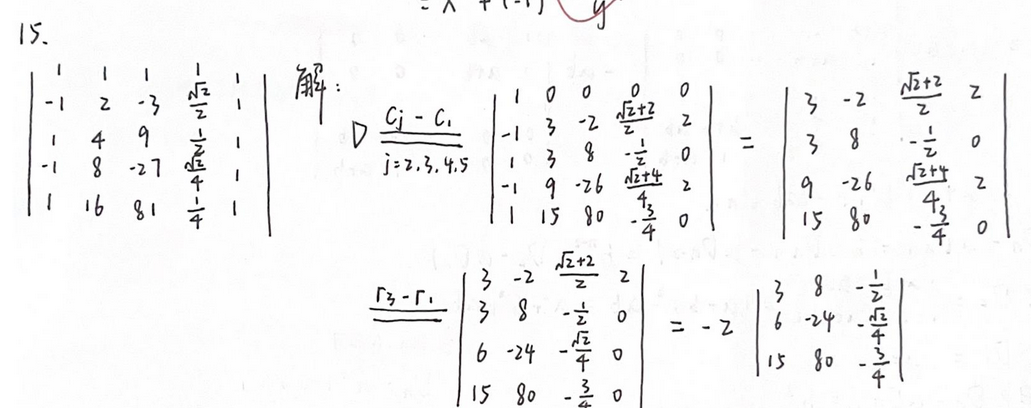 = x + (-1) y
15.
| 1 1 1 1 1 |
| -1 2 -3 √2/2 1 |
| 1 4 9 1/2 1 |
| -1 8 -27 √2/4 1 |
| 1 16 81 1/4 1 |
解:
D
Cj - C1
j=2.3.4.5
| 1 0 0 0 0 |
| -1 3 -2 √2+2/2 2 |
| 1 3 8 -1/2 0 |
| -1 9 -26 √2+4/4 2 |
| 1 15 80 -3/4 0 |
=
| 3 -2 √2+2/2 2 |
| 3 8 -1/2 0 |
| 9 -26 √2+4/4 2 |
| 15 80 -3/4 0 |
r3 - r1
| 3 -2 √2+2/2 2 |
| 3 8 -1/2 0 |
| 6 -24 -√2/4 0 |
| 15 80 -3/4 0 |
= -2
| 3 8 -1/2 |
| 6 -24 -√2/4 |
| 15 80 -3/4 |